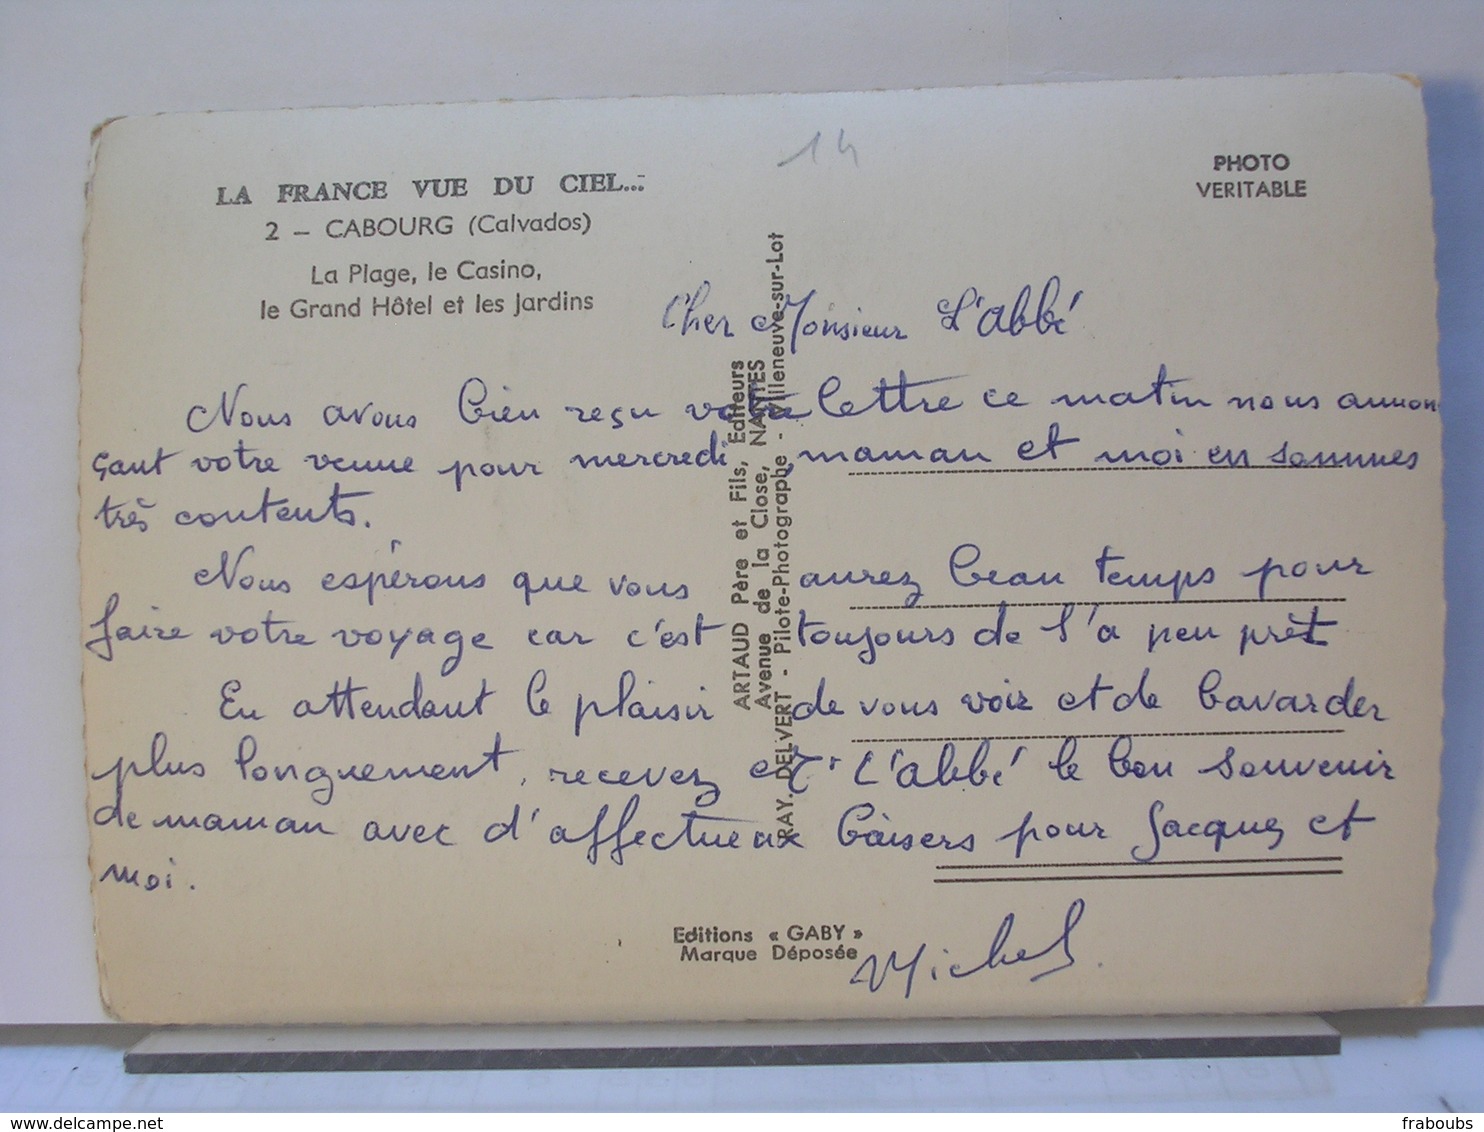 14
PHOTO
VERITABLE
LA FRANCE VUE DU CIEL...
2 – CABOURG (Calvados)
La Plage, le Casino,
le Grand Hôtel et les Jardins
Cher Monsieur L'abbé
Nous avons bien reçu votre lettre ce matin nous annon
çant votre venue pour mercredi, maman et moi en sommes
très contents.
Nous espérons que vous aurez beau temps pour
faire votre voyage car c'est toujours de l'a peu prèt
En attendant le plaisir de vous voir et de bavarder
plus longuement, recevez Mr L'abbé le bon souvenir
de maman avec d'affectueux baisers pour Jacques et
moi.
Michel.
ARTAUD Père et Fils, Editeurs
Avenue de la Close, NANTES
RAY. DELVERT - Pilote-Photographe - Villeneuve-sur-Lot
Editions « GABY »
Marque Déposée
delcampe.net
fraboubs